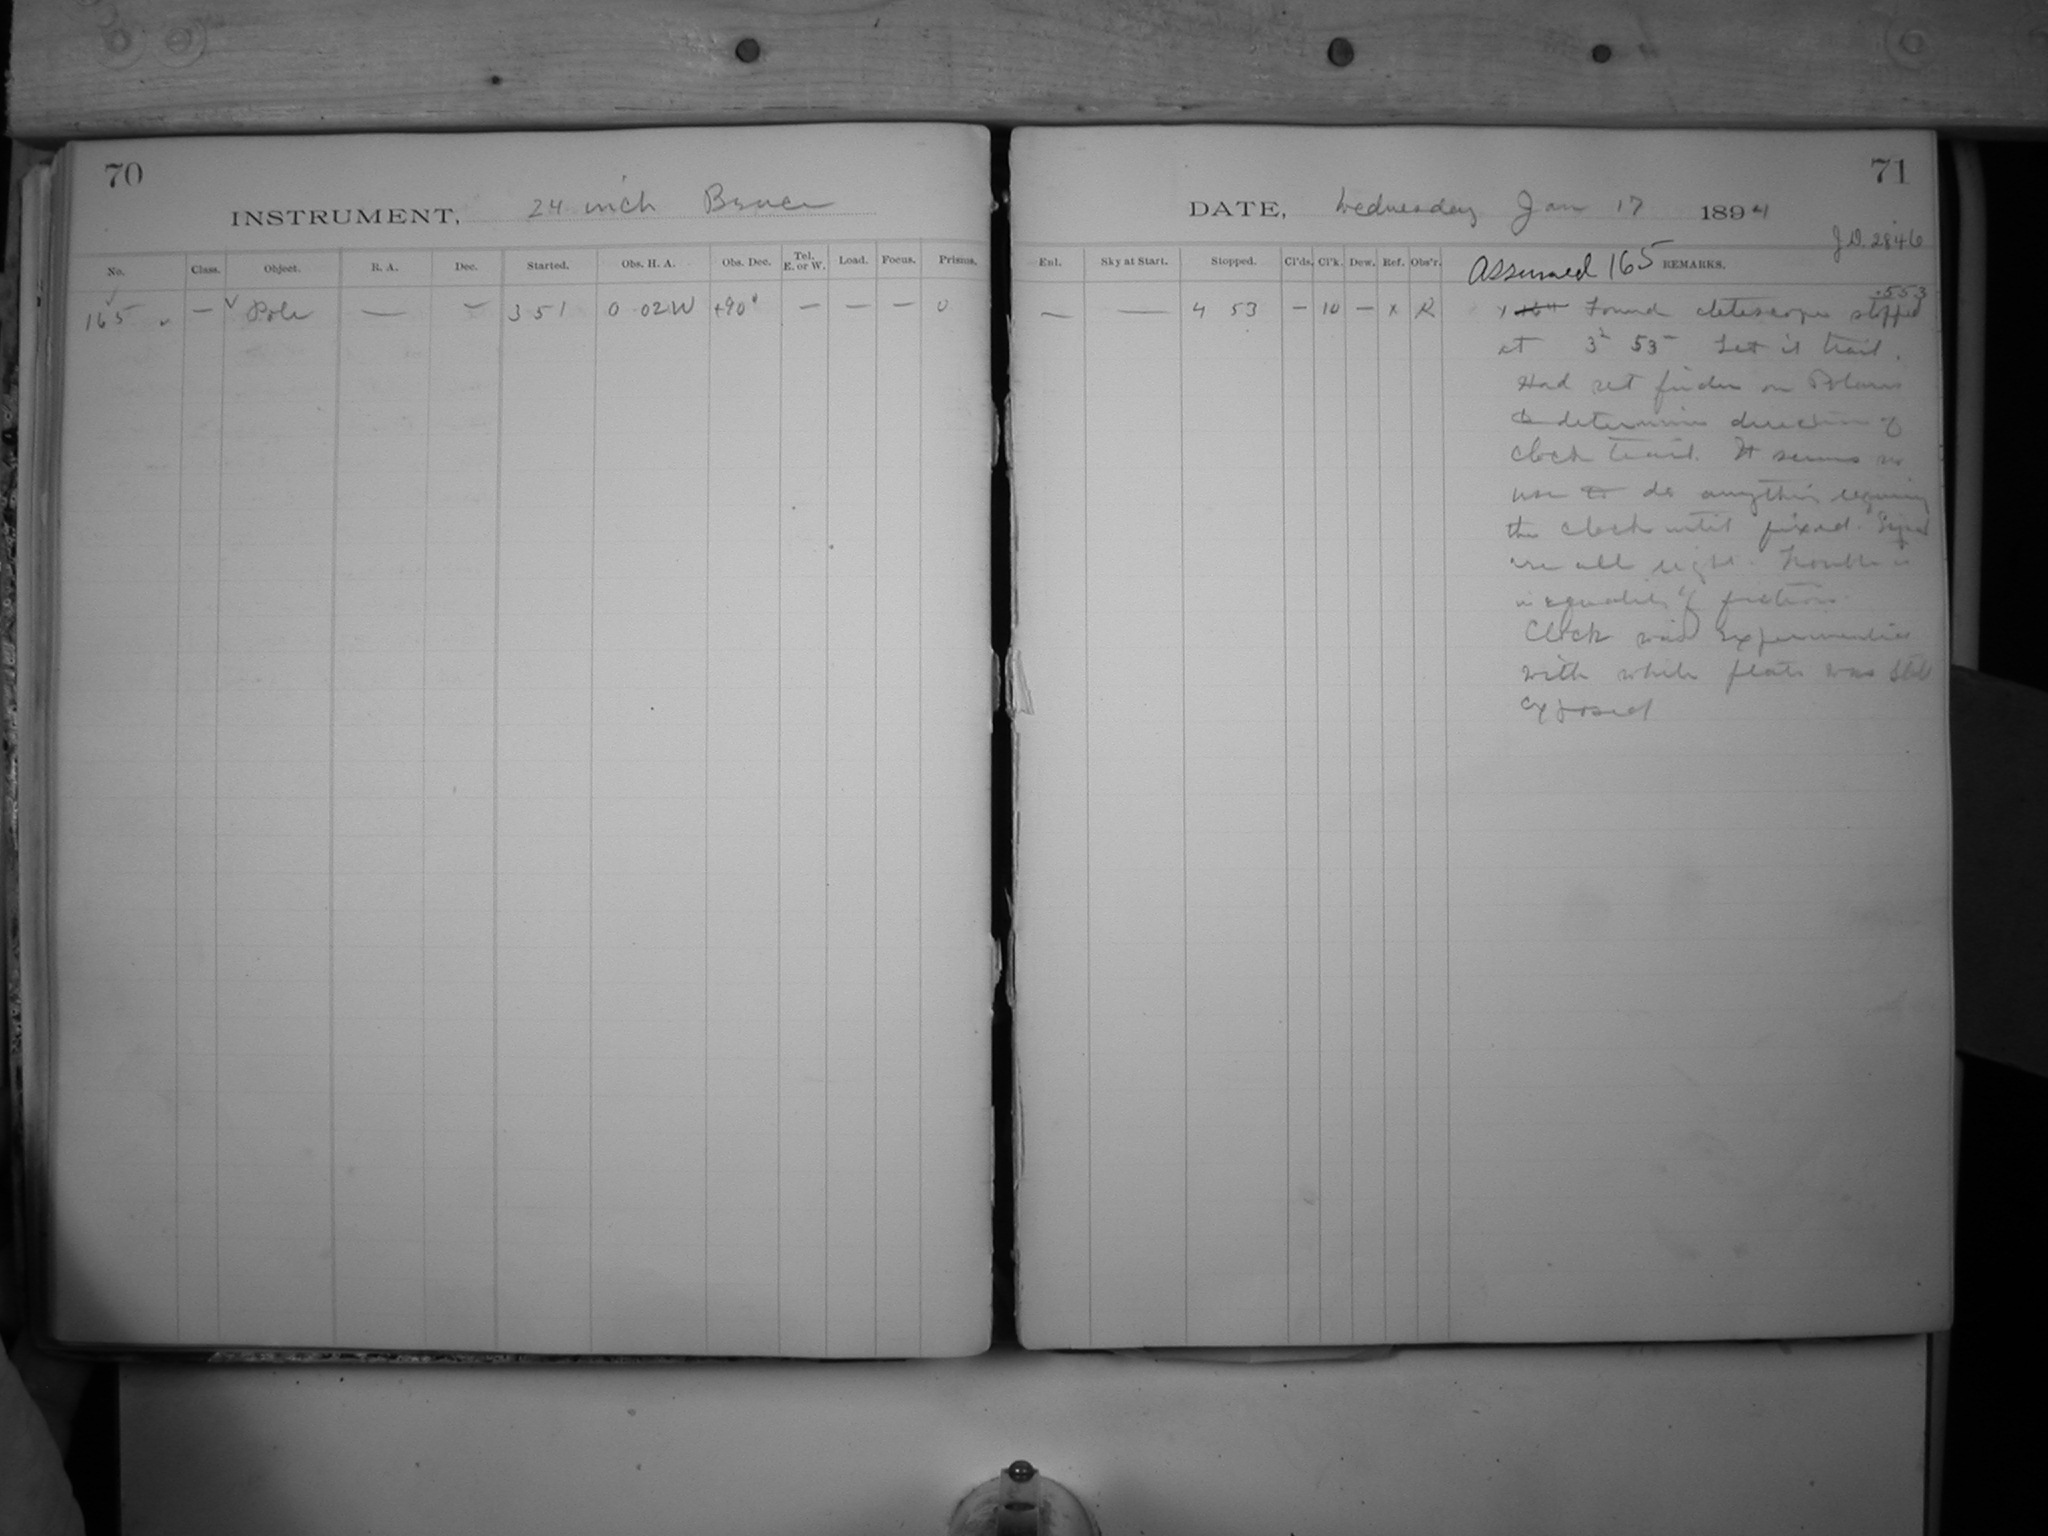 70
INSTRUMENT, 24 inch Bruce
No. Class. Object. R. A. Dec. Started. Obs. H. A. Obs. Dec. Tel. E. or W. Load. Focus. Prisms.
165 — Pole — — 3 51 0 02W +90° — — — 0
71
DATE, Wednesday Jan 17 1894
J.D. 2846
Enl. Sky at Start. Stopped. Cl'ds. Cl'k. Dew. Ref. Obs'r. Assumed 165 REMARKS.
.553
— — 4 53 — 10 — x R x Found telescope stopped
at 3 53 Let it trail.
Had set finder on Polaris
to determine direction of
clock trail. It seems no
use to do anything requiring
the clock until fixed.
are all right. Trouble is
inequality of friction.
Clock was experimented
with while plate was still
exposed